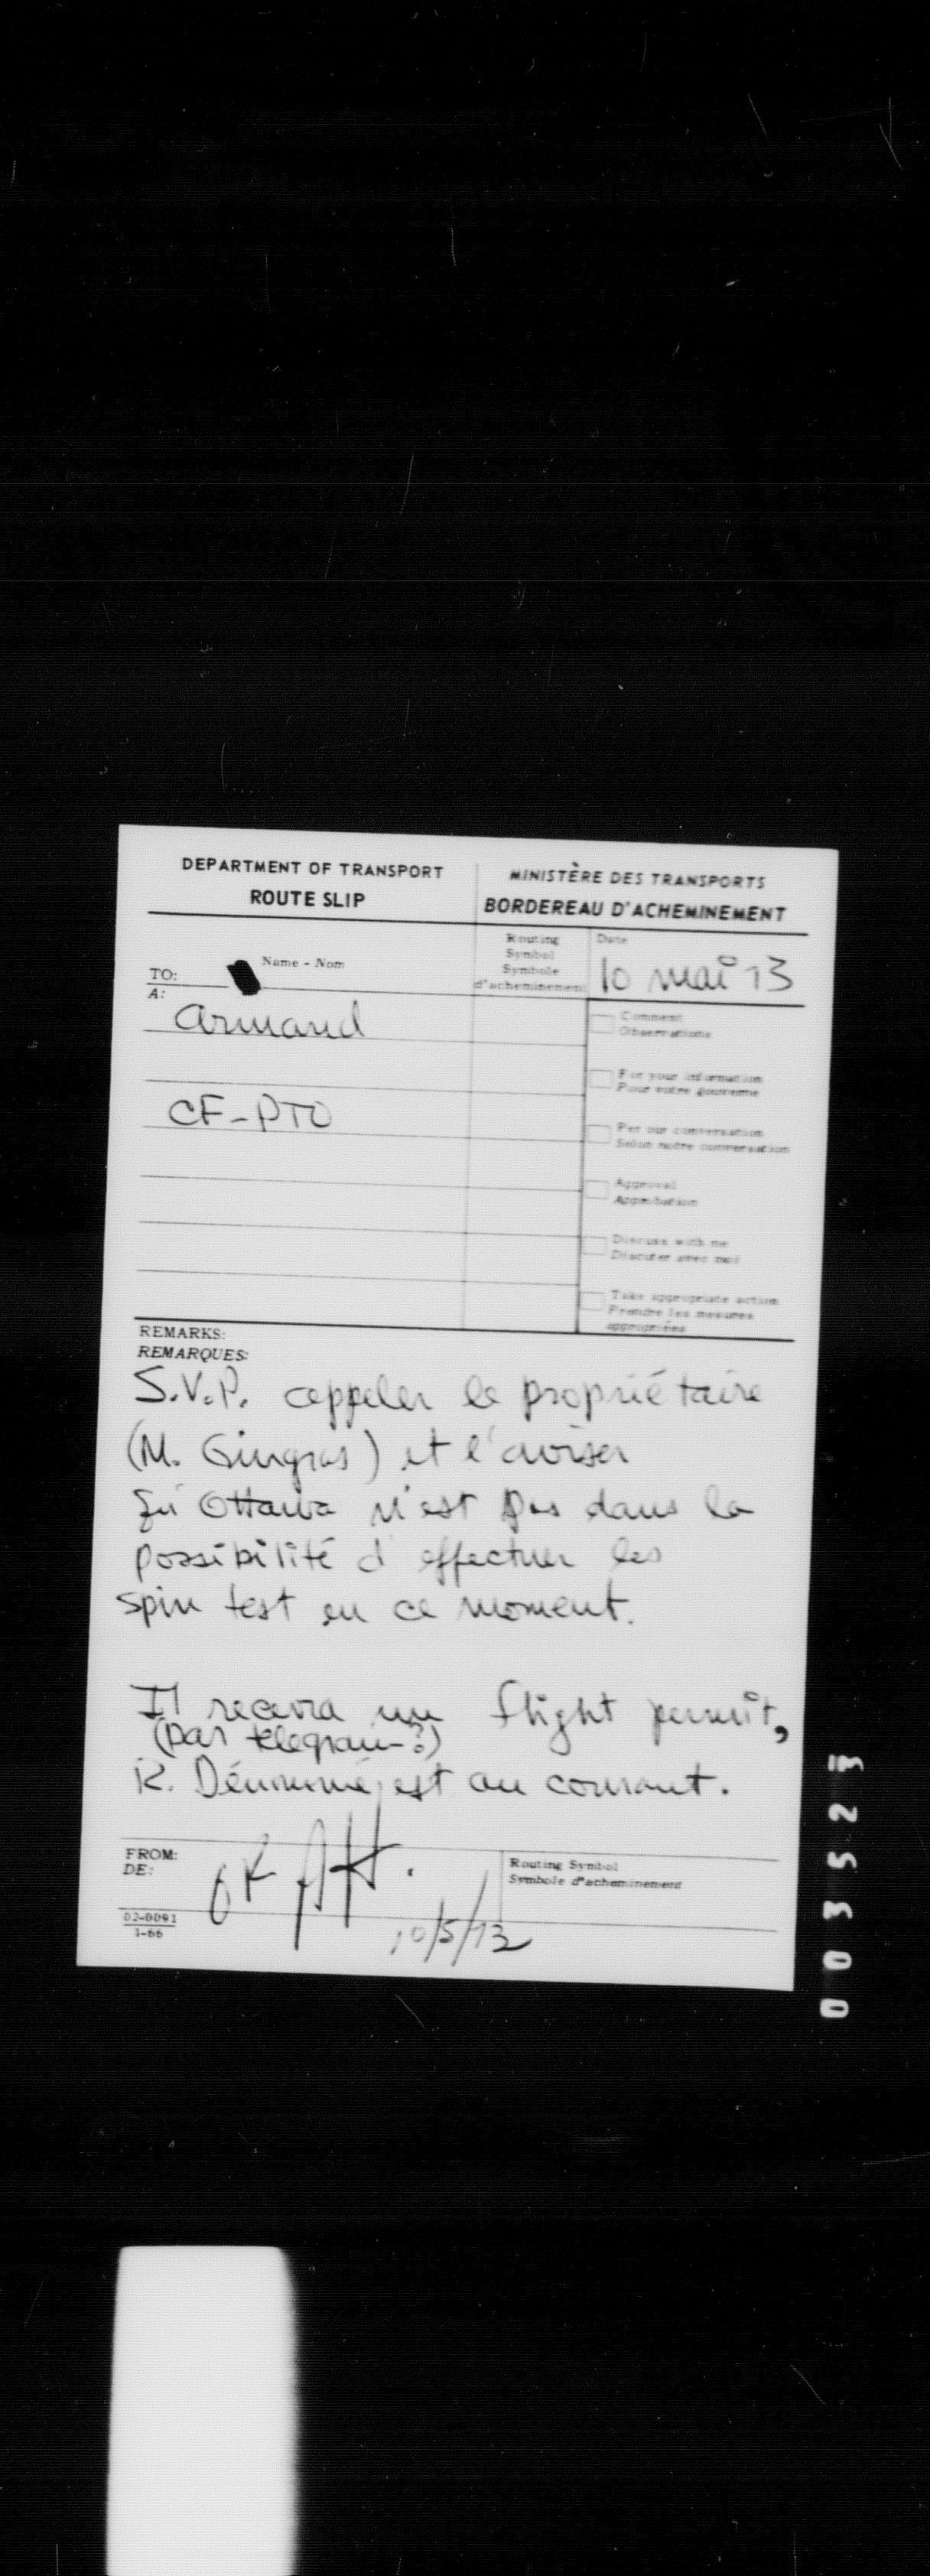 DEPARTMENT OF TRANSPORT
ROUTE SLIP
MINISTÈRE DES TRANSPORTS
BORDEREAU D'ACHEMINEMENT
TO:
A:
Name - Nom
Routing
Symbol
Symbole
d'acheminement
Date
10 mai 73
Armand
CF-PTO
Comment
Observations
For your information
Pour votre gouverne
Per our conversation
Selon notre conversation
Approval
Approbation
Discuss with me
Discuter avec moi
Take appropriate action
Prendre les mesures
appropriées
REMARKS:
REMARQUES:
S.V.P. appeler le propriétaire
(M. Gingras) et l'aviser
qu'Ottawa n'est pas dans la
possibilité d'effectuer les
spin test en ce moment.
Il recevra un flight permit,
(par telegram-?)
R. est au courant.
FROM:
DE:
OK
10/5/73
Routing Symbol
Symbole d'acheminement
02-0091
1-66
003523